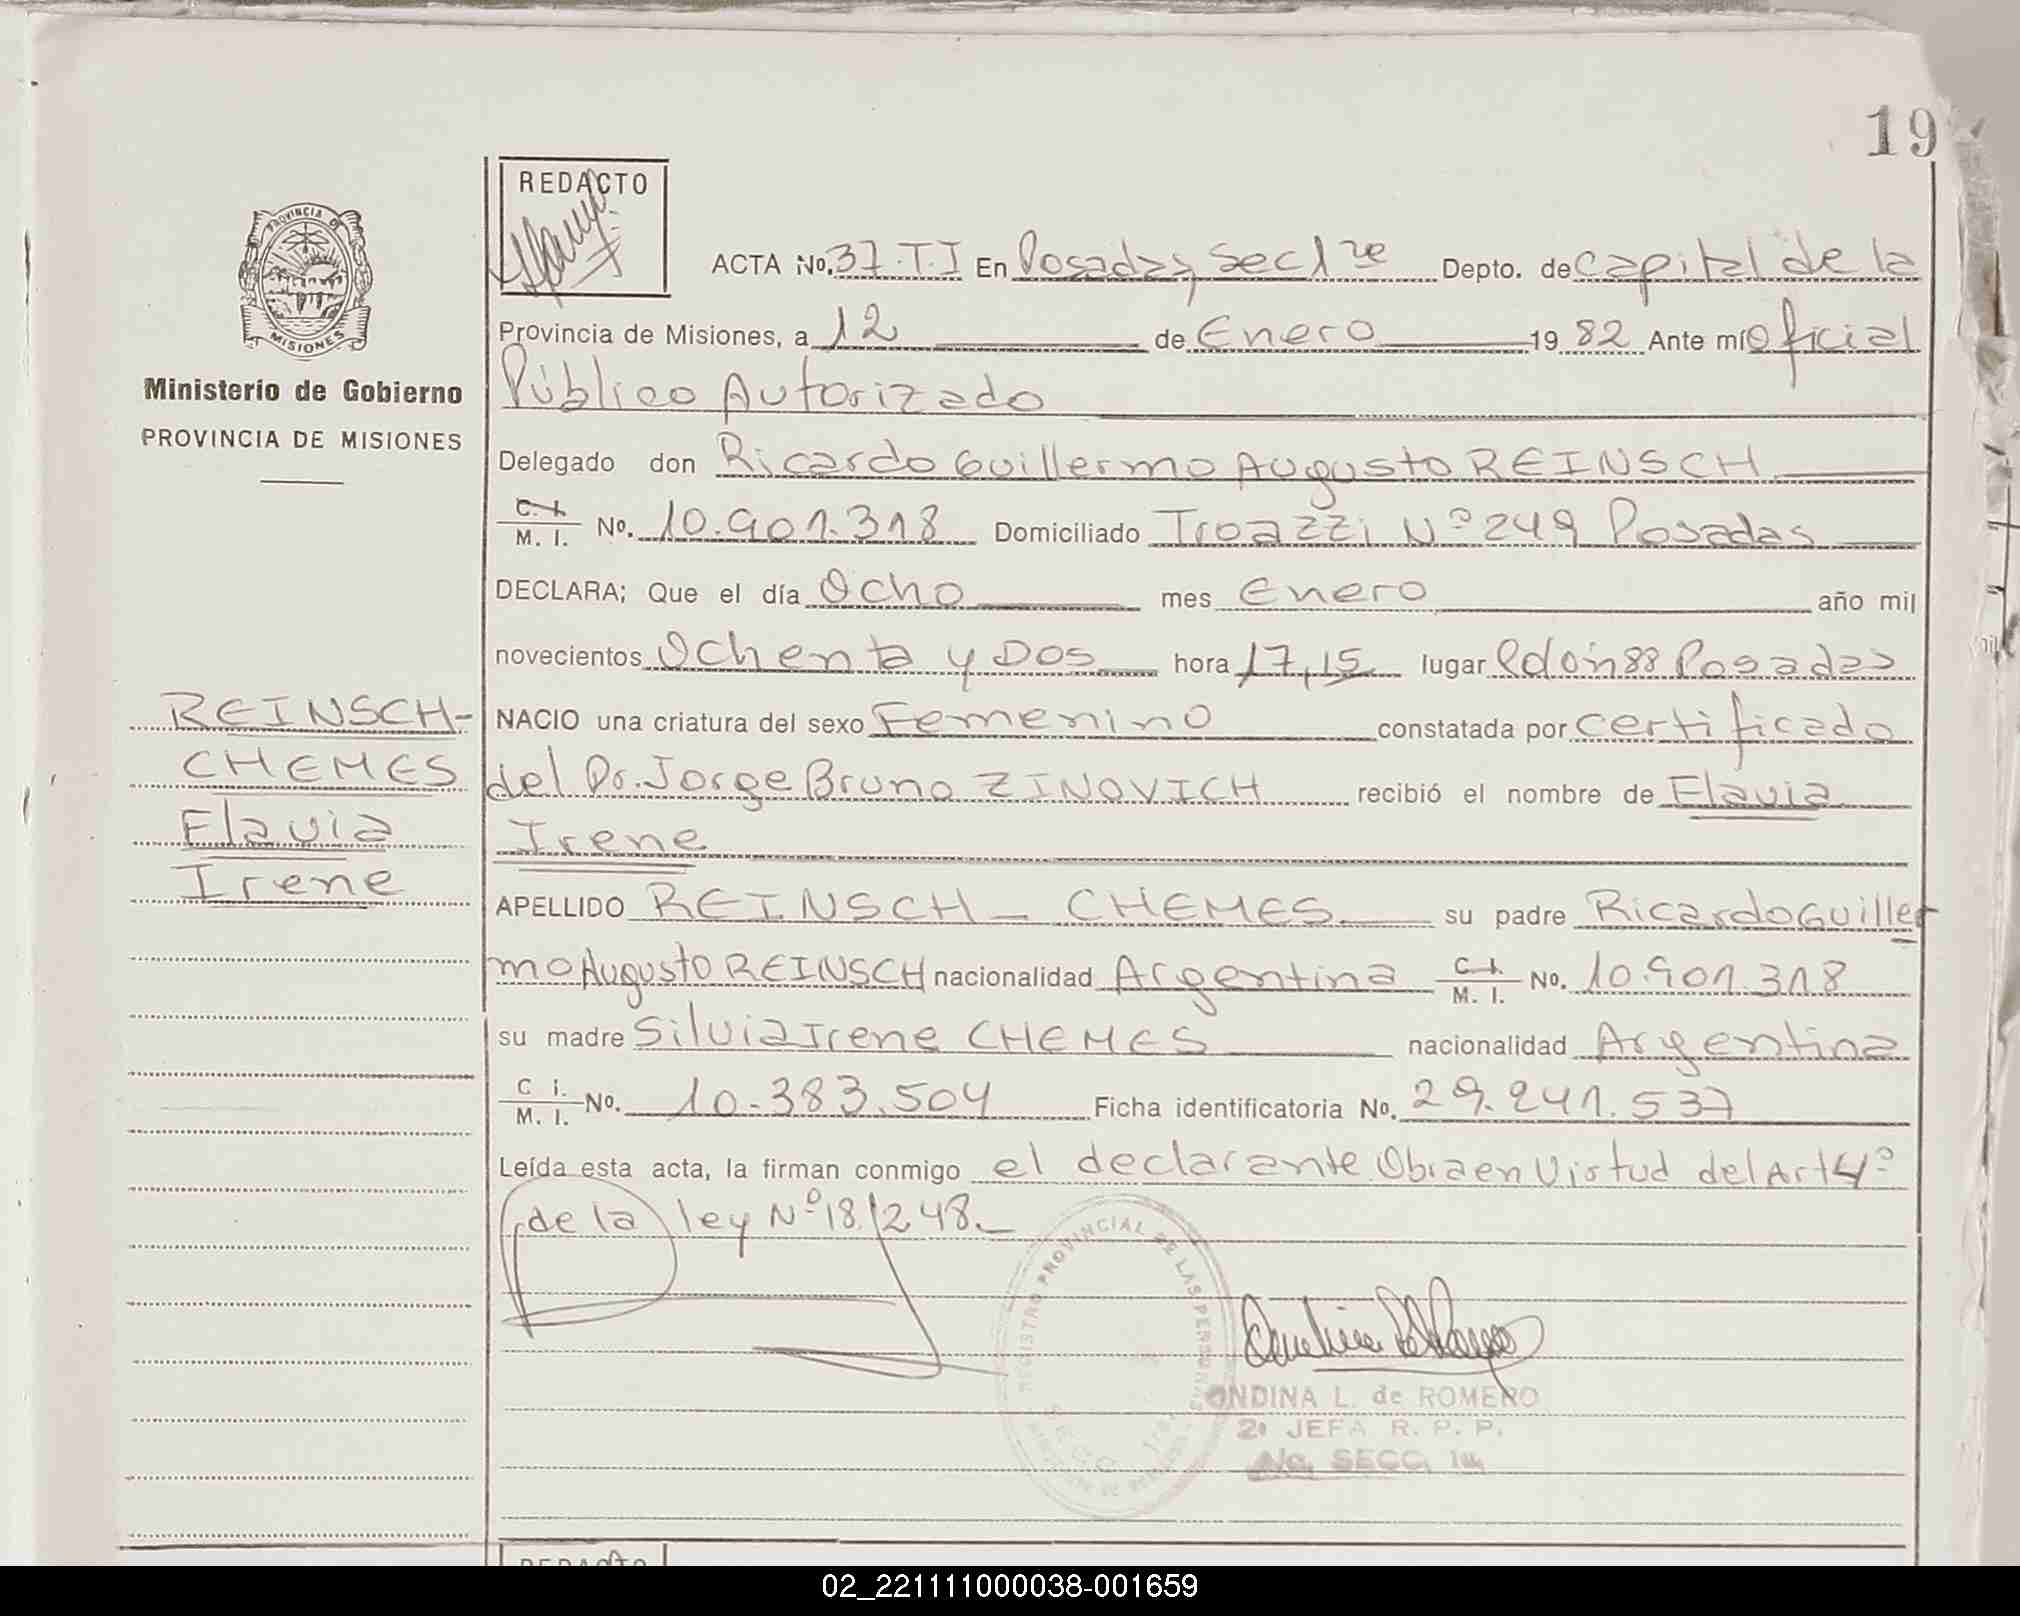 19
REDACTO
PROVINCIA DE
MISIONES
Ministerio de Gobierno
PROVINCIA DE MISIONES
ACTA No. 37.T.I En Posadas, Sec 1ra Depto. de Capital de la
Provincia de Misiones, a 12 de Enero 1982 Ante mí Oficial
Público Autorizado
Delegado don Ricardo Guillermo Augusto REINSCH
C. I. M. I. No. 10.901.318 Domiciliado Nº 249 Posadas
DECLARA; Que el día Ocho mes Enero año mil
novecientos Ochenta y Dos hora 17,15 lugar Posadas
NACIO una criatura del sexo Femenino constatada por certificado
del Dr. Jorge Bruno ZINOVICH recibió el nombre de Flavia
Irene
APELLIDO REINSCH - CHEMES su padre Ricardo Guiller
mo Augusto REINSCH nacionalidad Argentina C. I. M. I. No. 10.901.318
su madre Silvia Irene CHEMES nacionalidad Argentina
C. I. M. I. No. 10.383.504 Ficha identificatoria No. 29.241.537
Leída esta acta, la firman conmigo el declarante Obra en Virtud del Art 4º
de la ley Nº 18.248.-
REINSCH-
CHEMES
Flavia
Irene
REGISTRO PROVINCIAL DE LAS PERSONAS
ONDINA L. de ROMERO
2a JEFA R. P. P.
SECC. 1a.
REDACTO
02_221111000038-001659